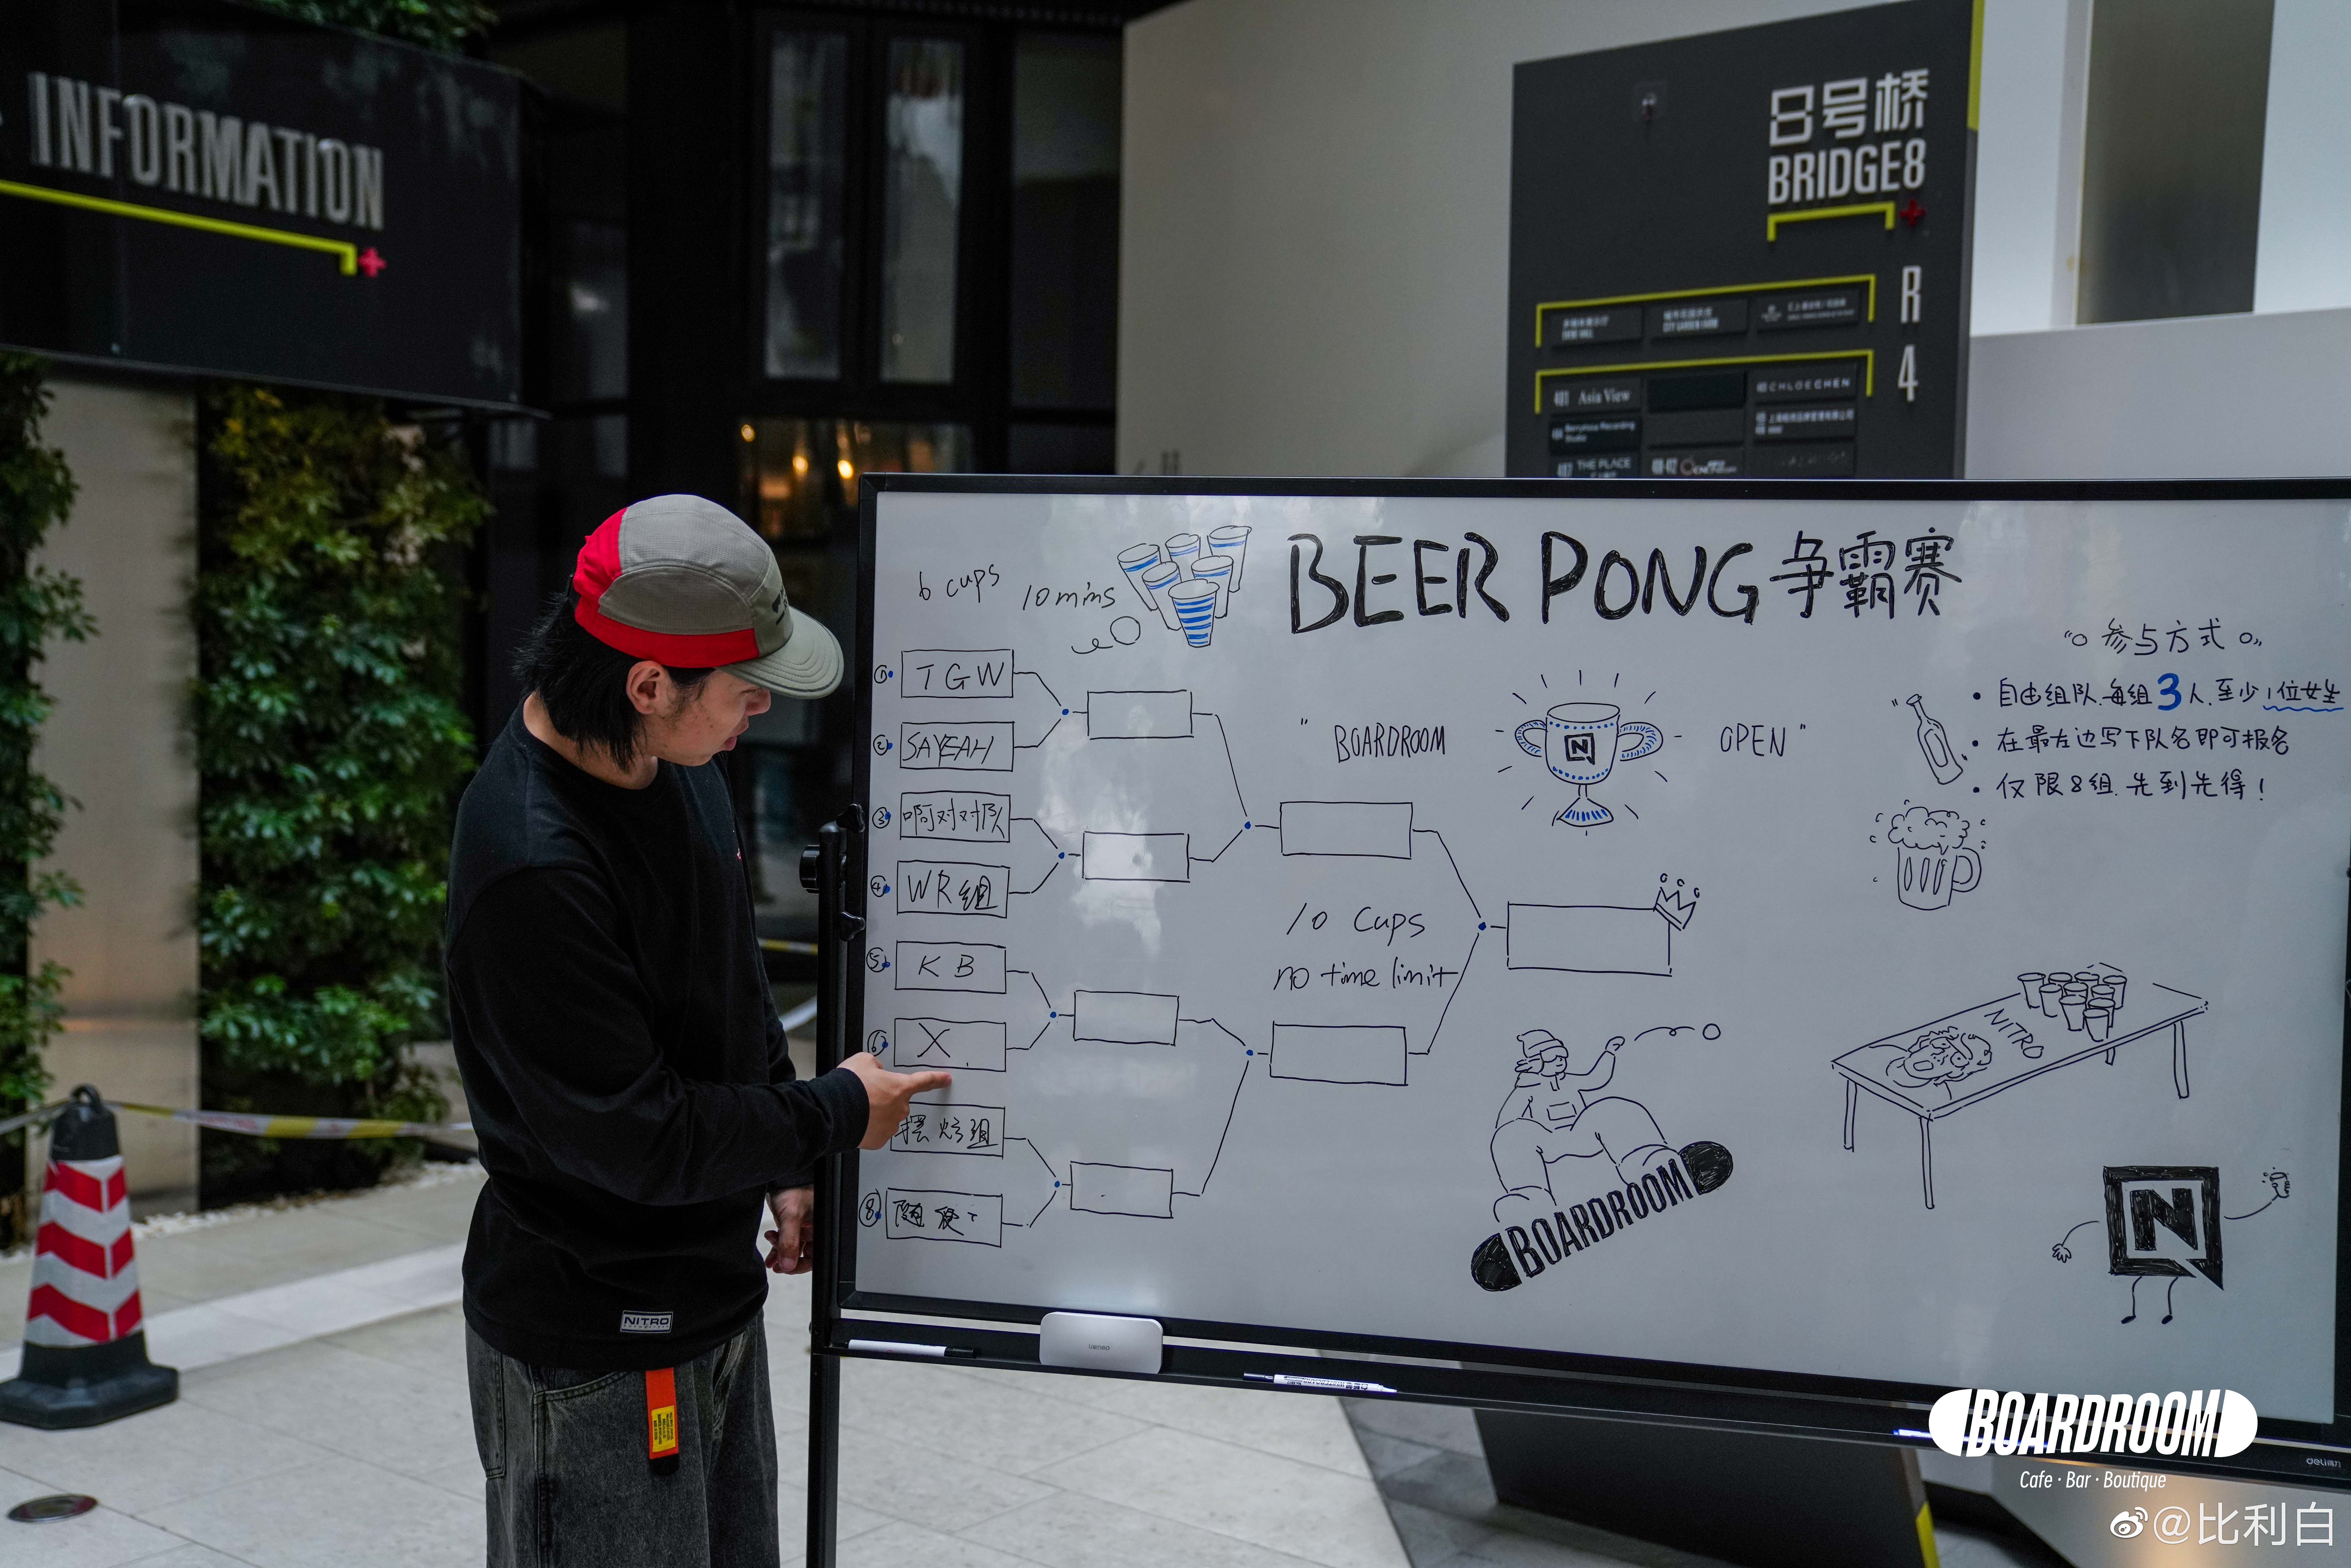 INFORMATION
8号桥
BRIDGE8
R
4
401 Asia View
CHLOECHEN
THE PLACE
6 cups
10 mins
BEER PONG 争霸赛
参与方式
• 自由组队.每组3人.至少1位女生
• 在最左边写下队名即可报名
• 仅限8组.先到先得!
" BOARDROOM
N
OPEN "
① TGW
② SAYEAH
③ 啊对对队
④ WR组
⑤ KB
⑥ X
摆烂组
⑧ 随便
10 Cups
no time limit
NITRO
BOARDROOM
N
NITRO
deli得力
BOARDROOM
Cafe · Bar · Boutique
@比利白